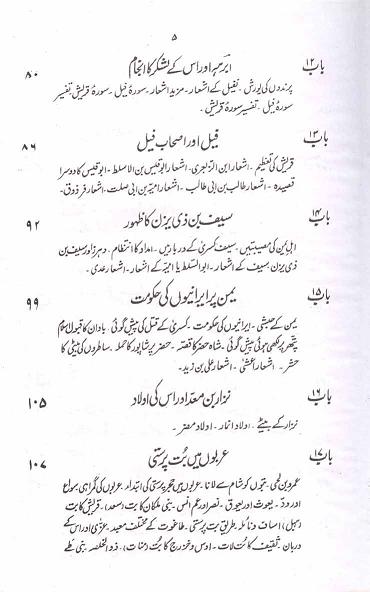 ۵
باب ۱۲ ابرہہ اور اس کے لشکر کا انجام ۸۰
پرندوں کی یورش ۔ نفیل کے اشعار ۔ مزید اشعار ۔ سورۂ فیل ۔ سورۂ قریش تفسیر
سورۂ فیل ۔ تفسیر سورۂ قریش ۔
باب ۱۳ فیل اور اصحاب فیل ۸۶
قریش کی تعظیم ۔ اشعار ابن الزبعری ۔ اشعار ابو قیس بن الاسلت ۔ ابو قیس کا دوسرا
قصیدہ ۔ اشعار طالب بن ابی طالب ۔ اشعار امیہ بن ابی صلت ۔ اشعار فرزدق ۔
باب ۱۴ سیف بن ذی یزن کا ظہور ۹۲
اہل یمن کی مصیبتیں ۔ سیف کسریٰ کے دربار میں ۔ امداد کا انتظام ۔ دہرز اور سیف بن
ذی یزن سیف کے اشعار ۔ ابو الصلت یا امیہ کے اشعار ۔ اشعار عدی ۔
باب ۱۵ یمن پر ایرانیوں کی حکومت ۹۹
یمن کے حبشی ۔ ایرانیوں کی حکومت ۔ کسریٰ کے قتل کی پیش گوئی ۔ باذان کا قبول اسلام
پتھر پر لکھی ہوئی پیش گوئی ۔ شاہ حضر کا قصہ ۔ حضر پر شاپور کا حملہ ۔ ساطرون کی بیٹی کا
حشر ۔ اشعار اعشیٰ ۔ اشعار علی بن زید ۔
باب ۱۶ نزار بن معد اور اس کی اولاد ۱۰۵
نزار کے بیٹے ۔ اولاد انمار ۔ اولاد مضر ۔
باب ۱۷ عربوں میں بُت پرستی ۱۰۷
عمرو بن لحی ۔ بتوں کو شام سے لانا ۔ عربوں میں پرستی کی ابتدا ۔ عربوں کی گمراہی سواع
اور ود ۔ یغوث اور یعوق ۔ نصر اور عم انس ۔ بنی ملکان کا بت (سعد) ۔ قریش کا بت
(ہبل) اساف و نائلہ ۔ طریق بت پرستی ۔ طاغوت کے مختلف معبد ۔ عزیٰ اور اس کے
دربان ۔ ثقیف کا بُت لات ۔ اوس و خزرج کا بُت (منات) ۔ ذو الخلصہ ۔ بنی طے